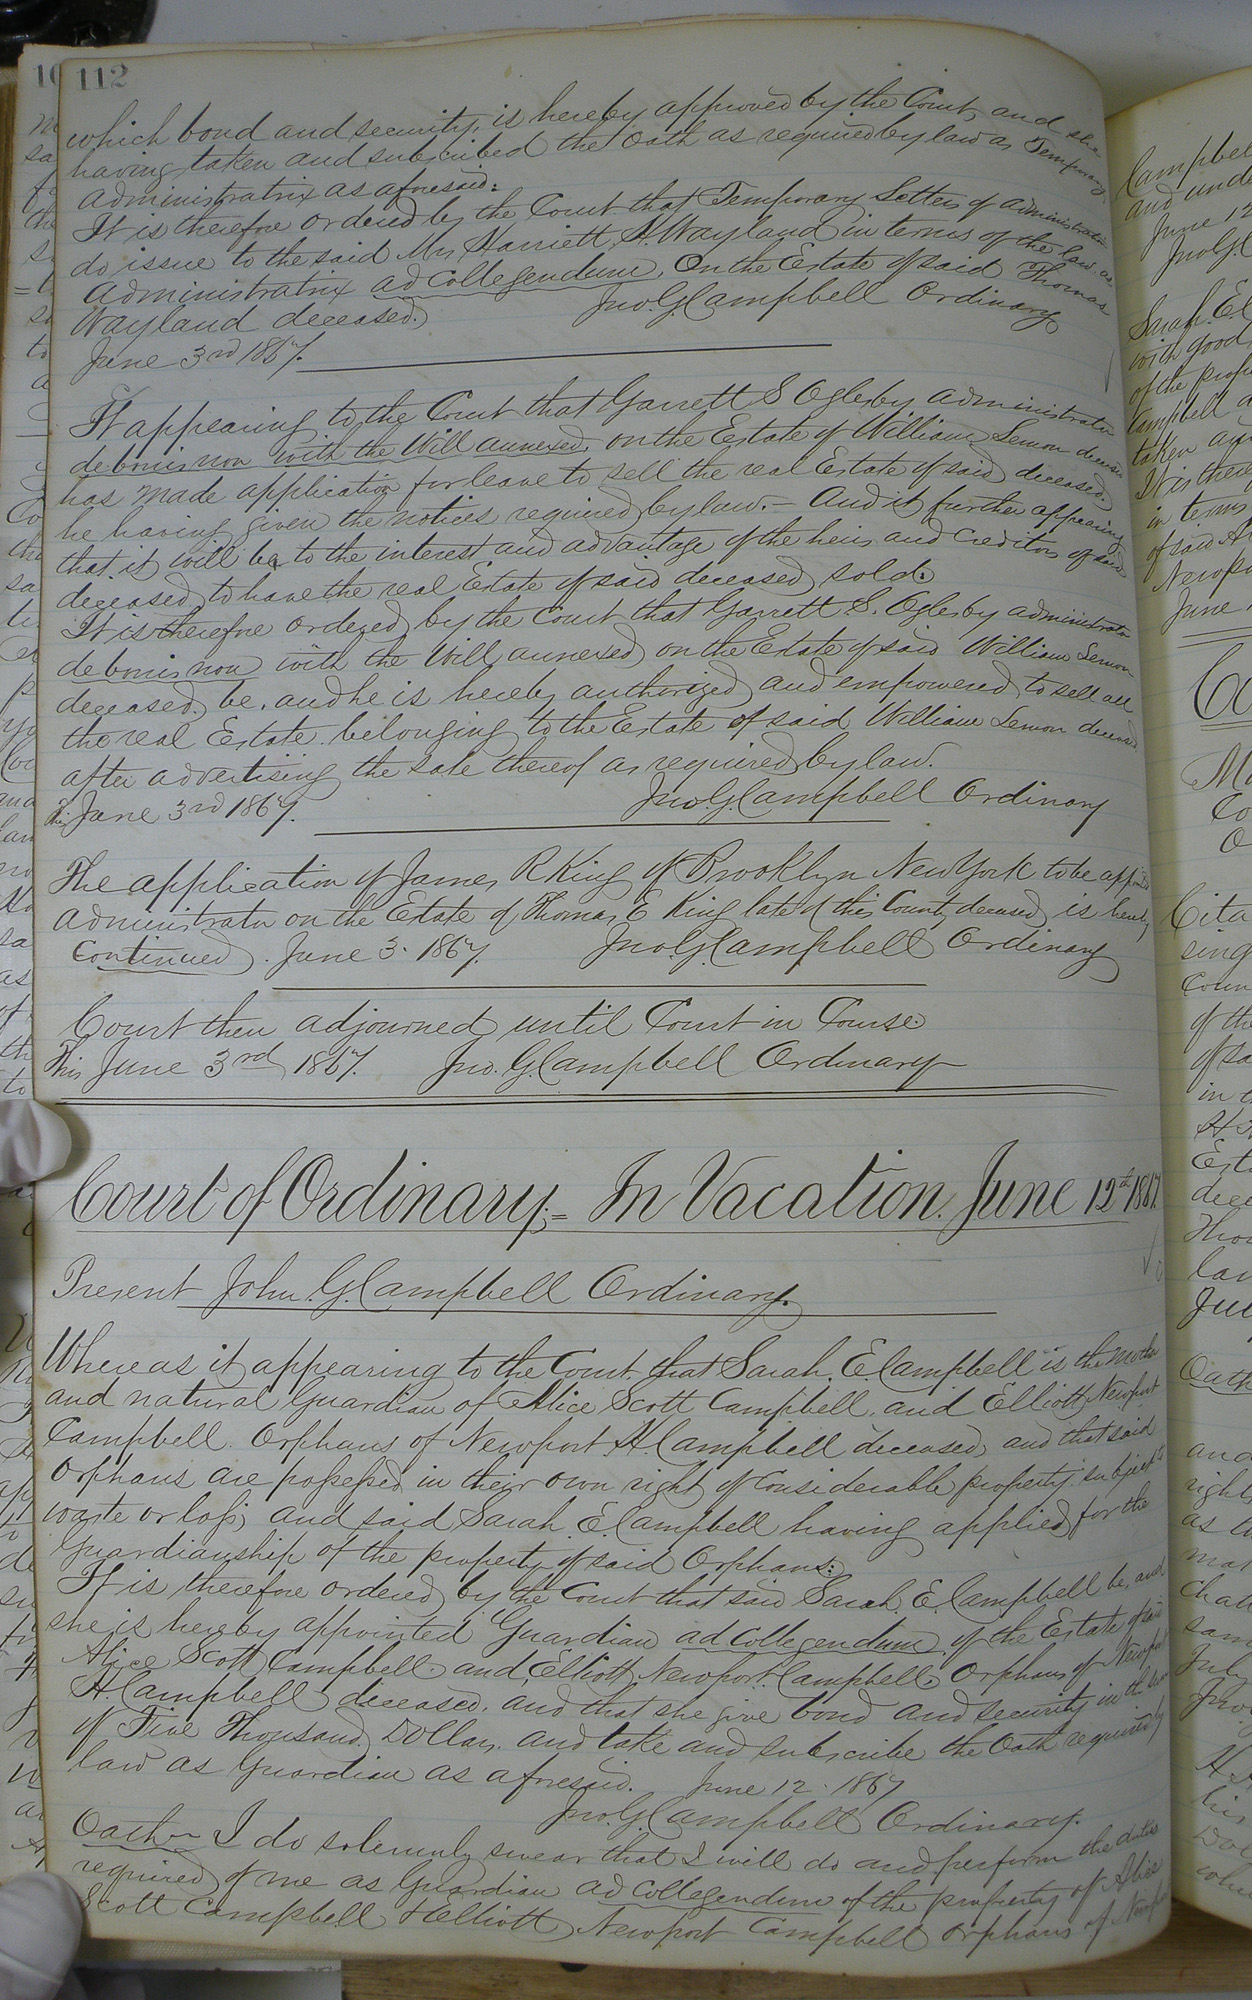 112
which bond and security, is hereby approved by the Court, and she
having taken and subscribed the Oath as required by law as Temporary
administratrix as aforesaid:
It is therefore ordered by the Court that Temporary Letters of administration
do issue to the said Mrs Harriett A. Wayland in terms of the law. as
administratrix ad Collegendum, On the Estate of said Thomas
Wayland deceased.
Jno. G. Campbell Ordinary
June 3rd 1867.
It appearing to the Court that Garrett S Oglesby administrator
de bonis non with the Will annexed, on the Estate of William Lemon deceased
has made application for leave to sell the real Estate of said deceased.
he having given the notices required by law. – And it further appearing
that it will be to the interest and advantage of the heirs and Creditors of said
deceased, to have the real Estate of said deceased, sold:
It is therefore ordered by the Court that Garrett S. Oglesby administrator
de bonis non with the Will annexed on the Estate of said William Lemon
deceased, be, and he is hereby authorized and empowered to sell all
the real Estate belonging to the Estate of said William Lemon deceased
after advertising the sale thereof as required by law.
This June 3rd 1867. Jno. G. Campbell Ordinary
The application of James R King of Brooklyn New York to be appointed
administrator on the Estate of Thomas E King late of this County deceased is hereby
Continued. June 3. 1867. Jno. G. Campbell Ordinary
Court then adjourned until Court in Course:
This June 3rd 1867. Jno. G. Campbell Ordinary
Court of Ordinary;= In Vacation. June 12th 1867.
Present John. G. Campbell Ordinary.
Whereas it appearing to the Court that Sarah. E. Campbell is the mother
and natural Guardian of Alice Scott Campbell, and Elliott Newport
Campbell. Orphans of Newport A Campbell deceased, and that said
Orphans are possessed in their own right of considerable property, subject to
waste or loss, and said Sarah. E. Campbell having applied for the
Guardianship of the property of said Orphans:
It is therefore ordered by the Court that said Sarah. E. Campbell be, and
she is hereby appointed Guardian ad Collegendum, of the Estate of said
Alice Scott Campbell. and Elliott Newport Campbell. Orphans of Newport
A. Campbell deceased. and that she give bond and security in the sum
of Five Thousand Dollars, and take and subscribe the Oath required by
law as Guardian as aforesaid. June 12. 1867
Jno. G. Campbell Ordinary.
Oath – I do solemnly swear that I will do and perform the duties
required of me as Guardian ad Collegendum of the property of Alice
Scott Campbell & Elliott Newport Campbell Orphans of Newport